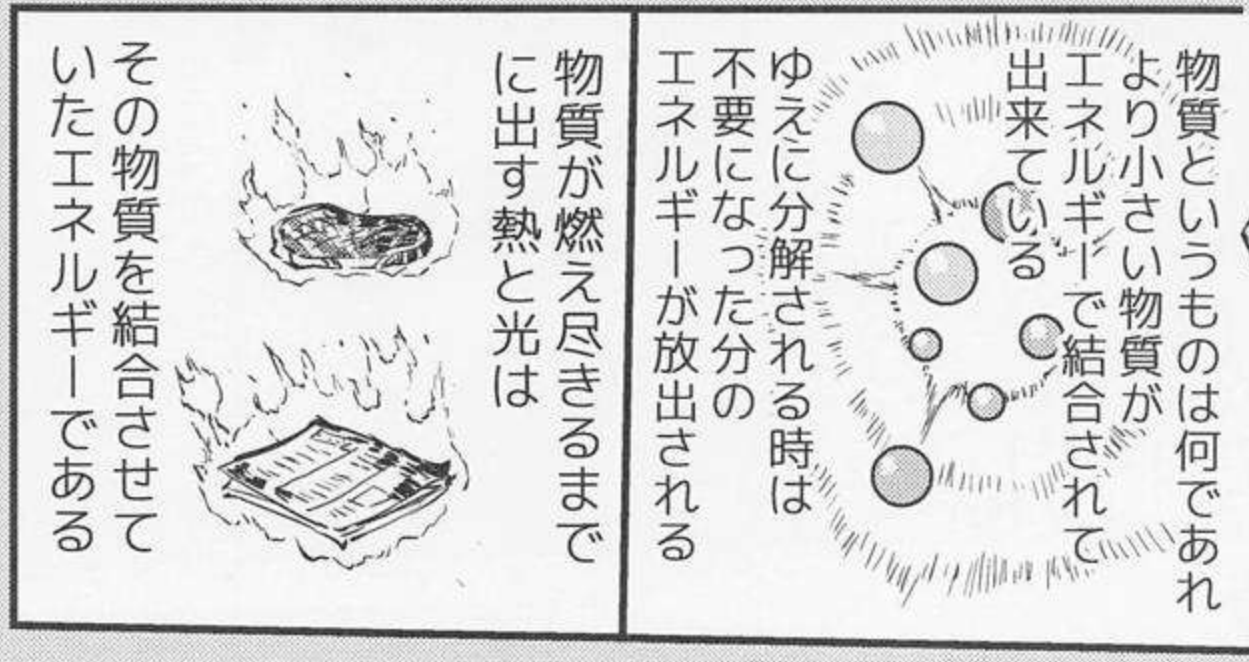 物質というものは何であれ
より小さい物質が
エネルギーで結合されて
出来ている
ゆえに分解される時は
不要になった分の
エネルギーが放出される
物質が燃え尽きるまで
に出す熱と光は
その物質を結合させて
いたエネルギーである